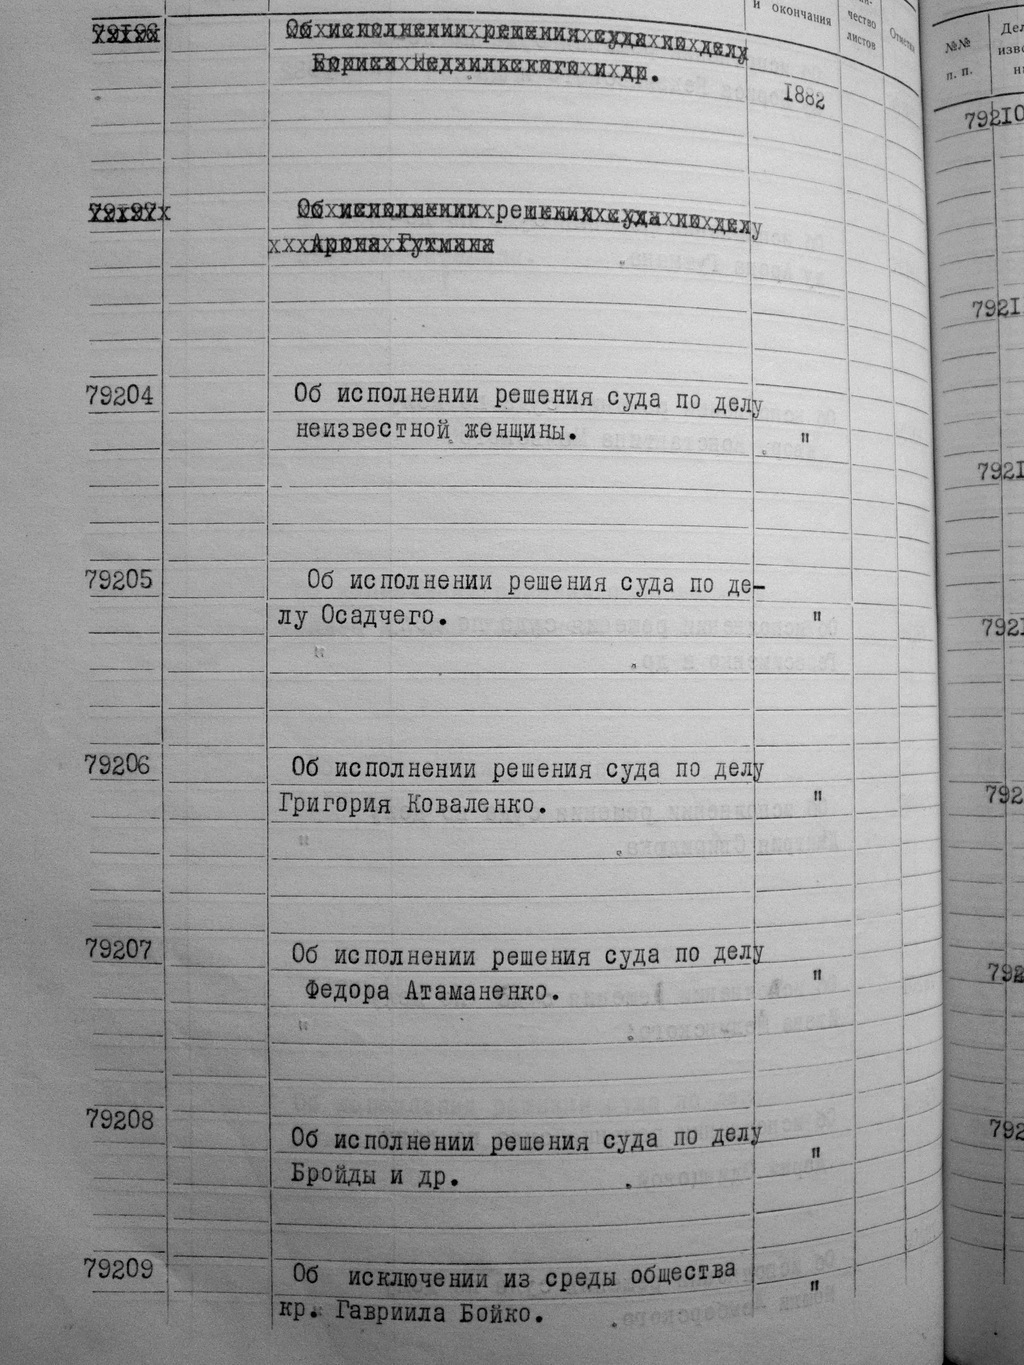 и окончания
чество
листов
Отметка
79196
Об исполнении решения суда по делу
Бориса Недзильского и др.
1882
79197
Об исполнении решения суда по делу
Арона Гутмана
79204
Об исполнении решения суда по делу
неизвестной женщины. "
79205
Об исполнении решения суда по де-
лу Осадчего. "
79206
Об исполнении решения суда по делу
Григория Коваленко. "
79207
Об исполнении решения суда по делу
Федора Атаманенко. "
79208
Об исполнении решения суда по делу
Бройды и др. "
79209
Об исключении из среды общества
кр. Гавриила Бойко. "
№№
п. п.
79210